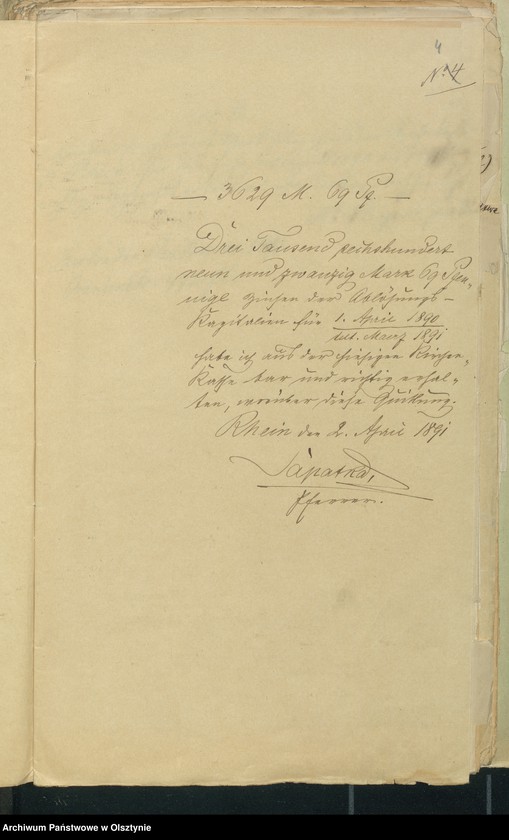 4
No 4
— 3629 M. 69 Pf. —
Drei Tausend sechshundert
neun und zwanzig Mark 69 Pfen-
nige Zinsen der Ablösungs-
Kapitalien für 1. April 1890
ult. März 1891
habe ich aus der hiesigen Kirchen-
Kasse bar und richtig erhal-
ten, worüber diese Quittung.
Rhein den 2. April 1891
Sapatka,
Pfarrer.
Archiwum Państwowe w Olsztynie